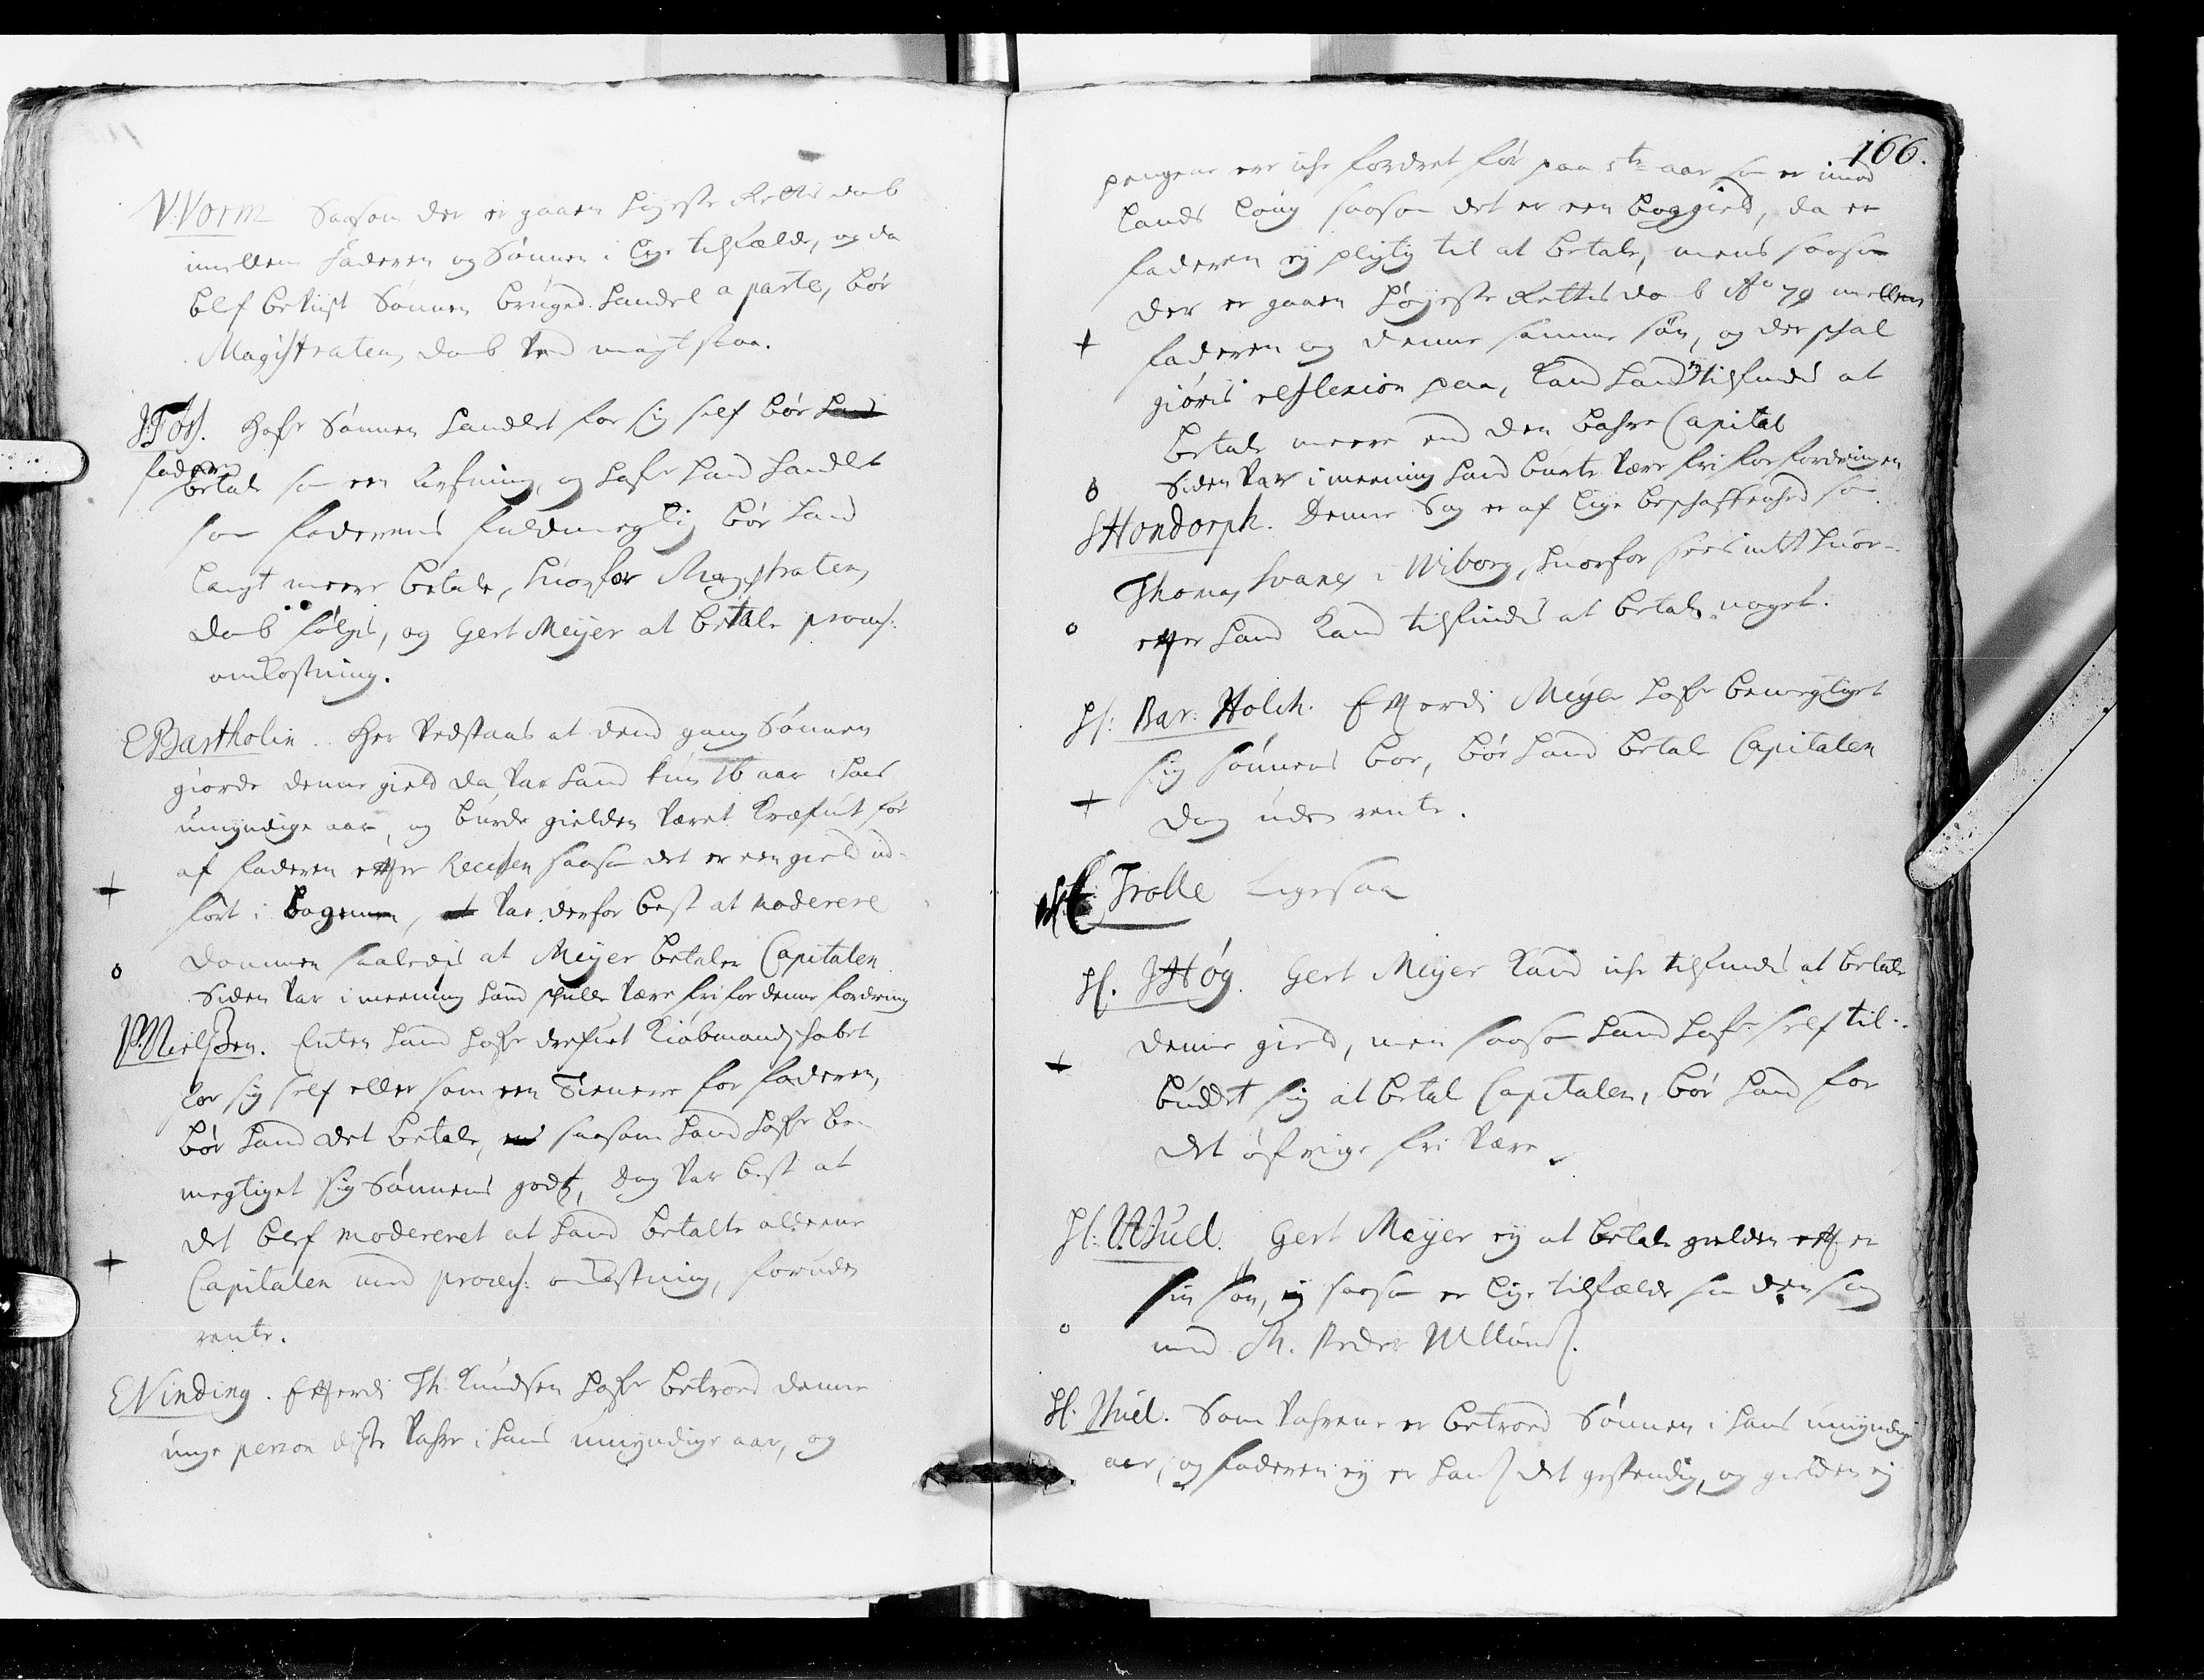 W. Worm Saasom der er gaaen Højeste Rettis domb
imellem Faderen og Sønnen i lige tilfælde, og da
blef beviist Sønnen bruged handel a parte, bør
Magistratens domb ved magt staa.
J. Foss. Hafr Sønnen handlet for sig self bør
faderen
betale som een Arfving, og hafr hand handlet
som Faderens fuldmegtig bør hand
langt meere betale, huorfor Magistratens
domb følges, og Gert Meijer at betale process:
omkostning.
E Bartholin. Her vedstaaes at dend gang Sønnen
giorde denne gield da var hand kun 16 aar i hans
umyndige aar, og burde gielden været kræfuit før
af Faderen efter Recessen saasom det er een gield ind-
ført i bogen, var derfor best at moderere
dommen saaledis at Meijer betaler Capitalen
Siden var i meening hand skulle være fri for denne fordring
P. Nielsen. Enten hand hafr drefuet Kiøbmandskabet
for sig self eller som een tienere for faderen,
bør hand det betale, saasom hand hafr be-
megtiget sig Sønnens godtz, dog var best at
det blef modereret at hand betalte alleene
Capitalen med process: omkostning, foruden
rente.
E Vinding. Efterdi Th: Knudsen hafr betroed denne
unge person disse vahre i hans umyndige aar, og
166.
pengene ere iche fordret før paa 5te aar som er imod
lands loug saasom det er een boggield, da er
faderen ej pligtig til at betale, mens saasom
der er gaaen Højeste Rettis domb Ao 79 mellem
faderen og denne samme søn, og der skal
giøris reflexion paa, kand hand ej tilfindes at
betale meere end den bahre Capital
Siden var i meening hand burte være fri for fordringen
S Hondorph. Denne Sag er af lige beschaffenhed som
Thomas Svanes i Wiborg, huorfor sees intet huor-
efter hand kand tilfindes at betale noget.
H: Bar: Holck. Efterdi Meijer hafr bemegtiget
sig sønnens boe, bør hand betale Capitalen
dog uden rente.
Trolle Ligesaa
H. J Høg. Gert Meijer kand iche tilfindes at betale
denne gield, men saasom hand hafr self til-
buddet sig at betale Capitalen, bør hand for
det øfrige fri være.
H: Juel. Gert Meijer ej at betale gielden efter
sin søn, saasom er lige tilfælde som den sag
med Th. Peder
H. Juel. Som vahrene er betroed Sønnen i hans umyndige
aar, og faderen ej er hans det gestendig, og gielden ej